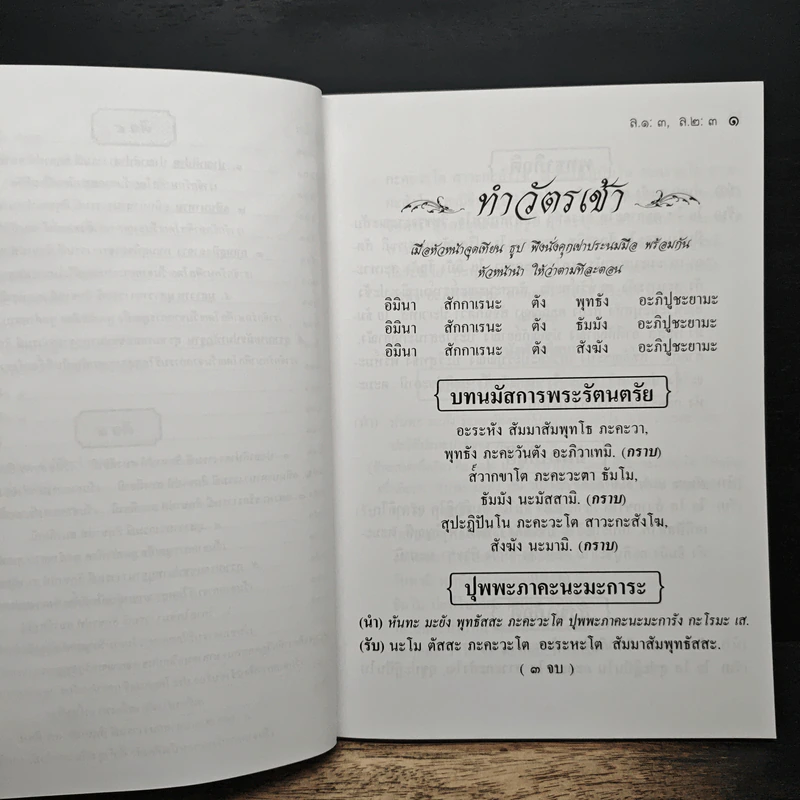 สิ.๑: ๓, สิ.๒: ๓ ๑
ทำวัตรเช้า
เมื่อหัวหน้าจุดเทียน ธูป พึงนั่งคุกเข่าประนมมือ พร้อมกัน
หัวหน้านำ ให้ว่าตามทีละตอน
อิมินา สักกาเรนะ ตัง พุทธัง อะภิปูชะยามะ
อิมินา สักกาเรนะ ตัง ธัมมัง อะภิปูชะยามะ
อิมินา สักกาเรนะ ตัง สังฆัง อะภิปูชะยามะ
บทนมัสการพระรัตนตรัย
อะระหัง สัมมาสัมพุทโธ ภะคะวา,
พุทธัง ภะคะวันตัง อะภิวาเทมิ. (กราบ)
ส๎วากขาโต ภะคะวะตา ธัมโม,
ธัมมัง นะมัสสามิ. (กราบ)
สุปะฏิปันโน ภะคะวะโต สาวะกะสังโฆ,
สังฆัง นะมามิ. (กราบ)
ปุพพะภาคะนะมะการะ
(นำ) หันทะ มะยัง พุทธัสสะ ภะคะวะโต ปุพพะภาคะนะมะการัง กะโรมะ เส.
(รับ) นะโม ตัสสะ ภะคะวะโต อะระหะโต สัมมาสัมพุทธัสสะ.
( ๓ จบ )